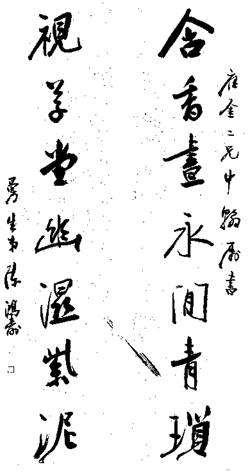 金二兄中翰屬書
含香晝永閒青瑣
視草堂幽濕紫泥
曼生弟陳鴻壽